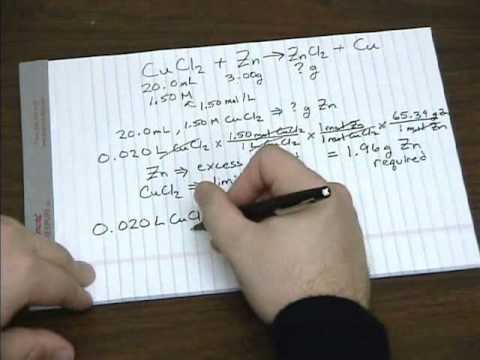 CuCl2 + Zn → ZnCl2 + Cu
20.0mL 3.00g ? g
1.50 M ↖ 1.50 mol/L
20.0mL, 1.50M CuCl2 ⇒ ? g Zn
0.020 L CuCl2 × 1.50 mol CuCl2 / 1 L CuCl2 × 1 mol Zn / 1 mol CuCl2 × 65.39 g Zn / 1 mol Zn
= 1.96g Zn required
Zn ⇒ excess
CuCl2 ⇒
0.020 L CuCl